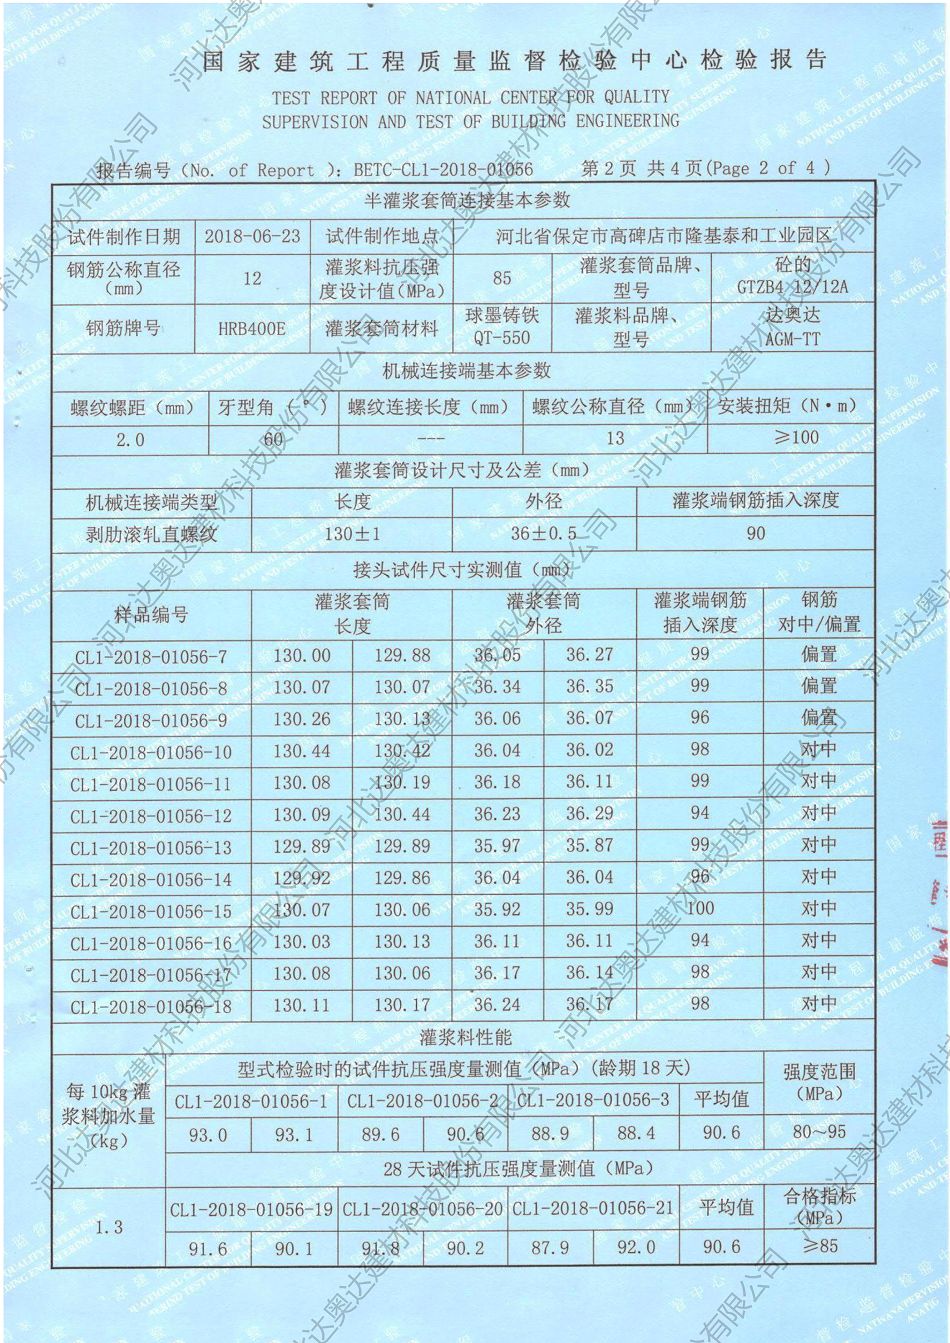 国家建筑工程质量监督检验中心检验报告
TEST REPORT OF NATIONAL CENTER FOR QUALITY
SUPERVISION AND TEST OF BUILDING ENGINEERING
报告编号（No. of Report ）：BETC-CL1-2018-01056 第2页 共4页(Page 2 of 4 )
半灌浆套筒连接基本参数
试件制作日期 2018-06-23 试件制作地点 河北省保定市高碑店市隆基泰和工业园区
钢筋公称直径（mm） 12 灌浆料抗压强度设计值(MPa) 85 灌浆套筒品牌、型号 砼的 GTZB4 12/12A
钢筋牌号 HRB400E 灌浆套筒材料 球墨铸铁 QT-550 灌浆料品牌、型号 达奥达 AGM-TT
机械连接端基本参数
螺纹螺距（mm） 牙型角（°） 螺纹连接长度（mm） 螺纹公称直径（mm） 安装扭矩（N·m）
2.0 60 --- 13 ≥100
灌浆套筒设计尺寸及公差（mm）
机械连接端类型 长度 外径 灌浆端钢筋插入深度
剥肋滚轧直螺纹 130±1 36±0.5 90
接头试件尺寸实测值（mm）
样品编号 灌浆套筒长度 灌浆套筒外径 灌浆端钢筋插入深度 钢筋对中/偏置
CL1-2018-01056-7 130.00 129.88 36.05 36.27 99 偏置
CL1-2018-01056-8 130.07 130.07 36.34 36.35 99 偏置
CL1-2018-01056-9 130.26 130.13 36.06 36.07 96 偏置
CL1-2018-01056-10 130.44 130.42 36.04 36.02 98 对中
CL1-2018-01056-11 130.08 130.19 36.18 36.11 99 对中
CL1-2018-01056-12 130.09 130.44 36.23 36.29 94 对中
CL1-2018-01056-13 129.89 129.89 35.97 35.87 99 对中
CL1-2018-01056-14 129.92 129.86 36.04 36.04 96 对中
CL1-2018-01056-15 130.07 130.06 35.92 35.99 100 对中
CL1-2018-01056-16 130.03 130.13 36.11 36.11 94 对中
CL1-2018-01056-17 130.08 130.06 36.17 36.14 98 对中
CL1-2018-01056-18 130.11 130.17 36.24 36.17 98 对中
灌浆料性能
每10kg灌浆料加水量（kg） 型式检验时的试件抗压强度量测值（MPa）(龄期18天) 强度范围（MPa）
CL1-2018-01056-1 CL1-2018-01056-2 CL1-2018-01056-3 平均值
93.0 93.1 89.6 90.6 88.9 88.4 90.6 80～95
28天试件抗压强度量测值（MPa）
1.3 CL1-2018-01056-19 CL1-2018-01056-20 CL1-2018-01056-21 平均值 合格指标（MPa）
91.6 90.1 91.8 90.2 87.9 92.0 90.6 ≥85
河北达奥达建材科技股份有限公司